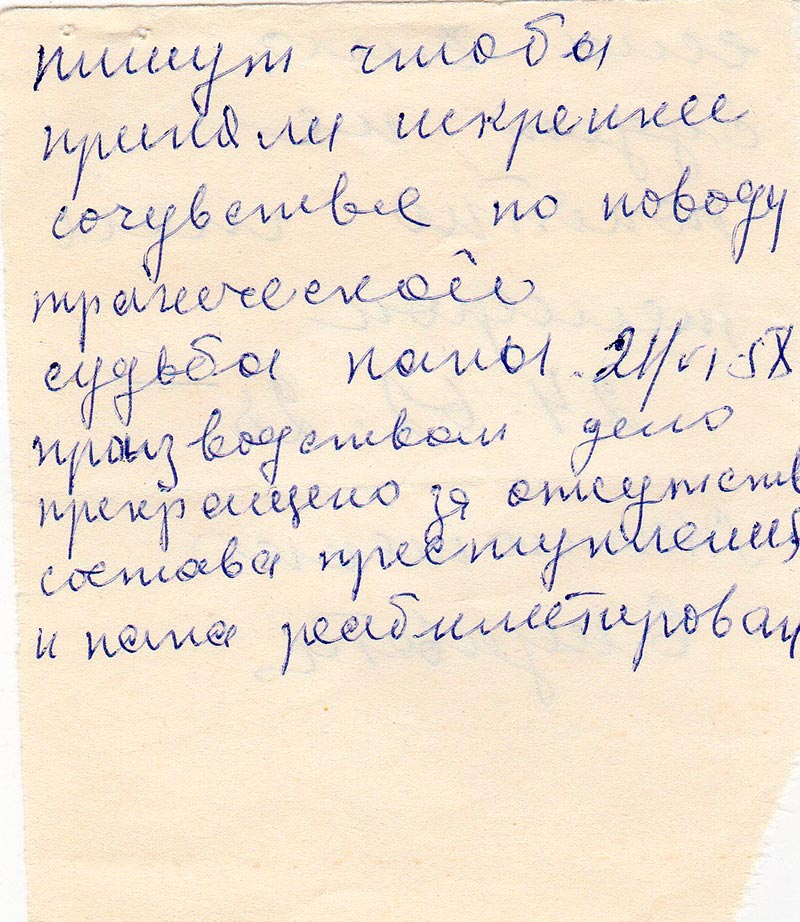 пишут чтобы
приняли искреннее
сочувствие по поводу
трагической
судьба папы. 21/VI-58
производством дело
прекращено за отсутств
состава преступлений
и папа реабилитирован